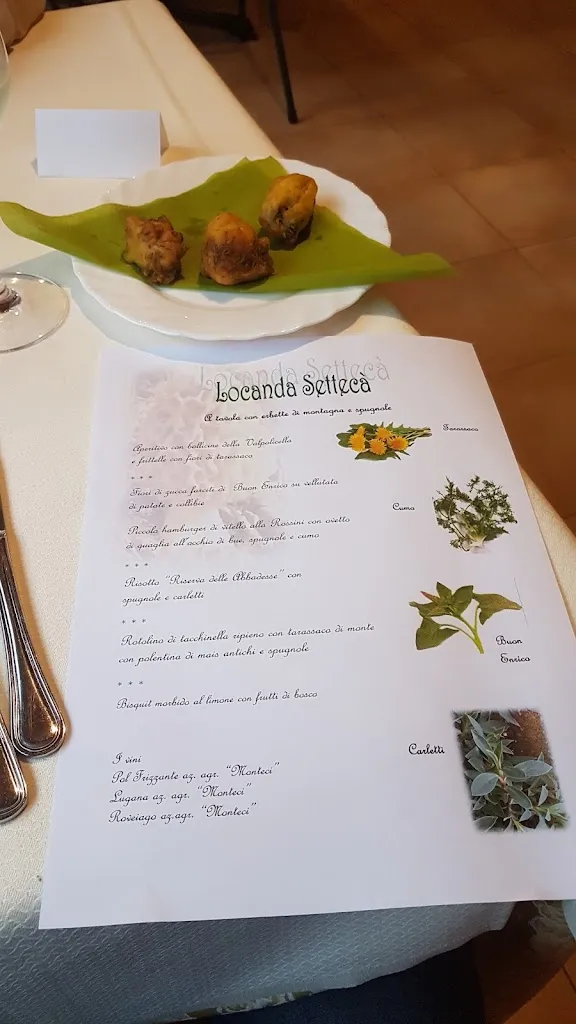 Locanda Settecà
Locanda Settecà
A tavola con erbette di montagna e spugnole
Aperitivo con bollicine della Valpolicella
e frittelle con fiori di tarassaco
Tarassaco
* * *
Fiori di zucca farciti di Buon Enrico su vellutata
di patate e collibie
Cumo
Piccolo hamburger di vitello alla Rossini con ovetto
di quaglia all'occhio di bue, spugnole e cumo
* * *
Risotto "Riserva delle Abbadesse" con
spugnole e carletti
* * *
Buon
Enrico
Rotolino di tacchinella ripieno con tarassaco di monte
con polentina di mais antichi e spugnole
* * *
Bisquit morbido al limone con frutti di bosco
Carletti
I vini
Pol Frizzante az. agr. "Monteci"
Lugana az. agr. "Monteci"
Roveiago az.agr. "Monteci"